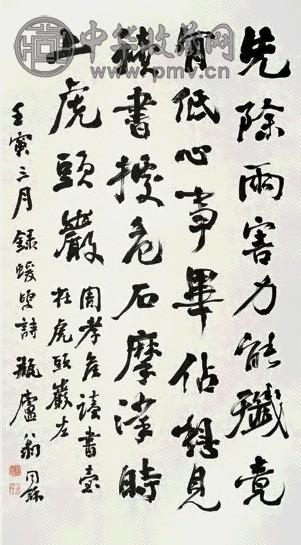 中华收藏网
www.pmv.cn
先除兩害力能殲竟
肯低心事畢佔想見
積書據危石摩挲時
上虎頭巖
周孝侯讀書臺
在虎頭巖左
壬寅三月錄蝯叟詩瓶廬翁同龢